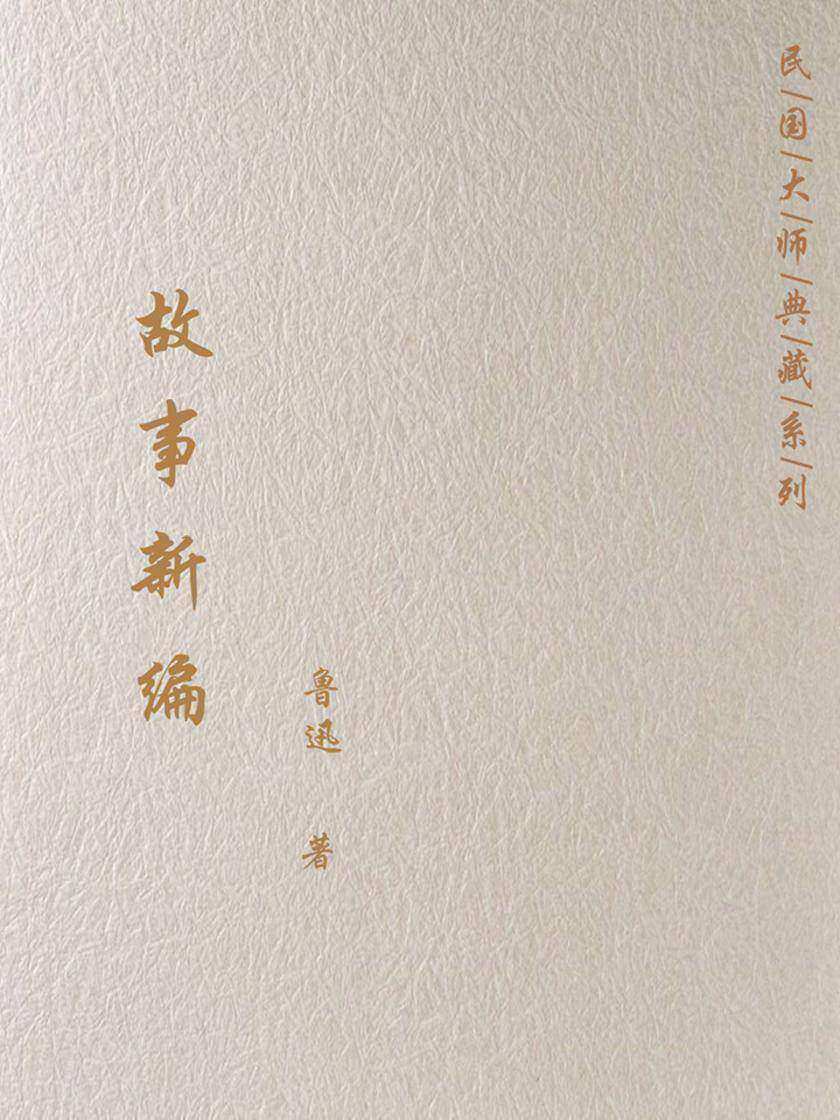 民/国/大/师/典/藏/系/列
故事新编
鲁迅 著